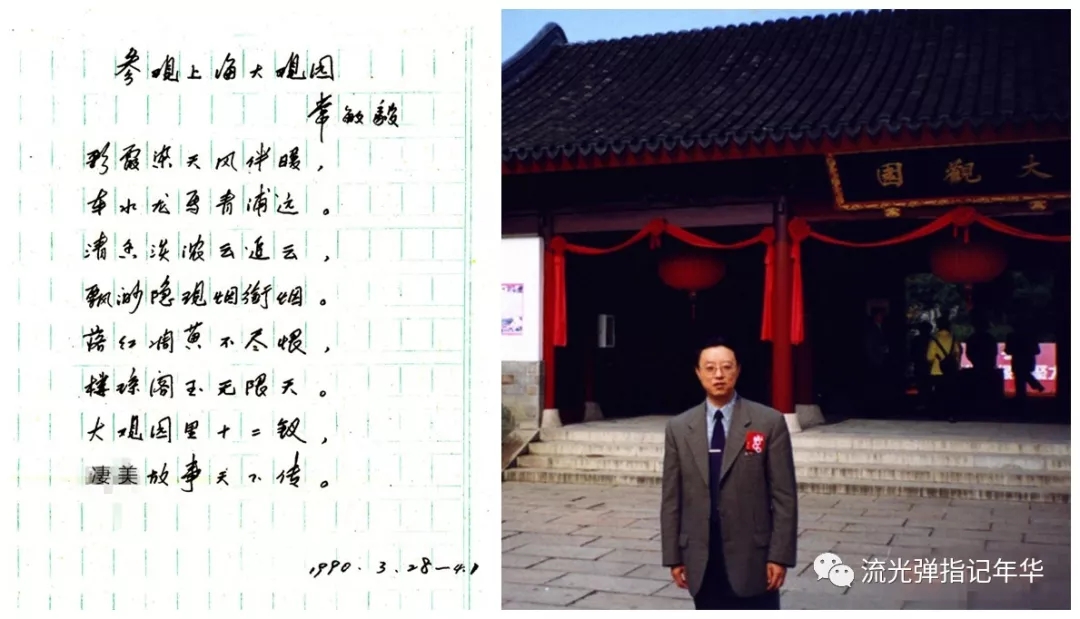 参观上海大观园
常敏毅
彩霞染天风伴暖，
车水龙马青浦远。
清香淡浓云追云，
飘渺隐现烟衔烟。
落红凋黄不尽恨，
楼琼阁玉无限天。
大观园里十二钗，
凄美故事天下传。
1990.3.28—4.1
大觀園
流光弹指记年华